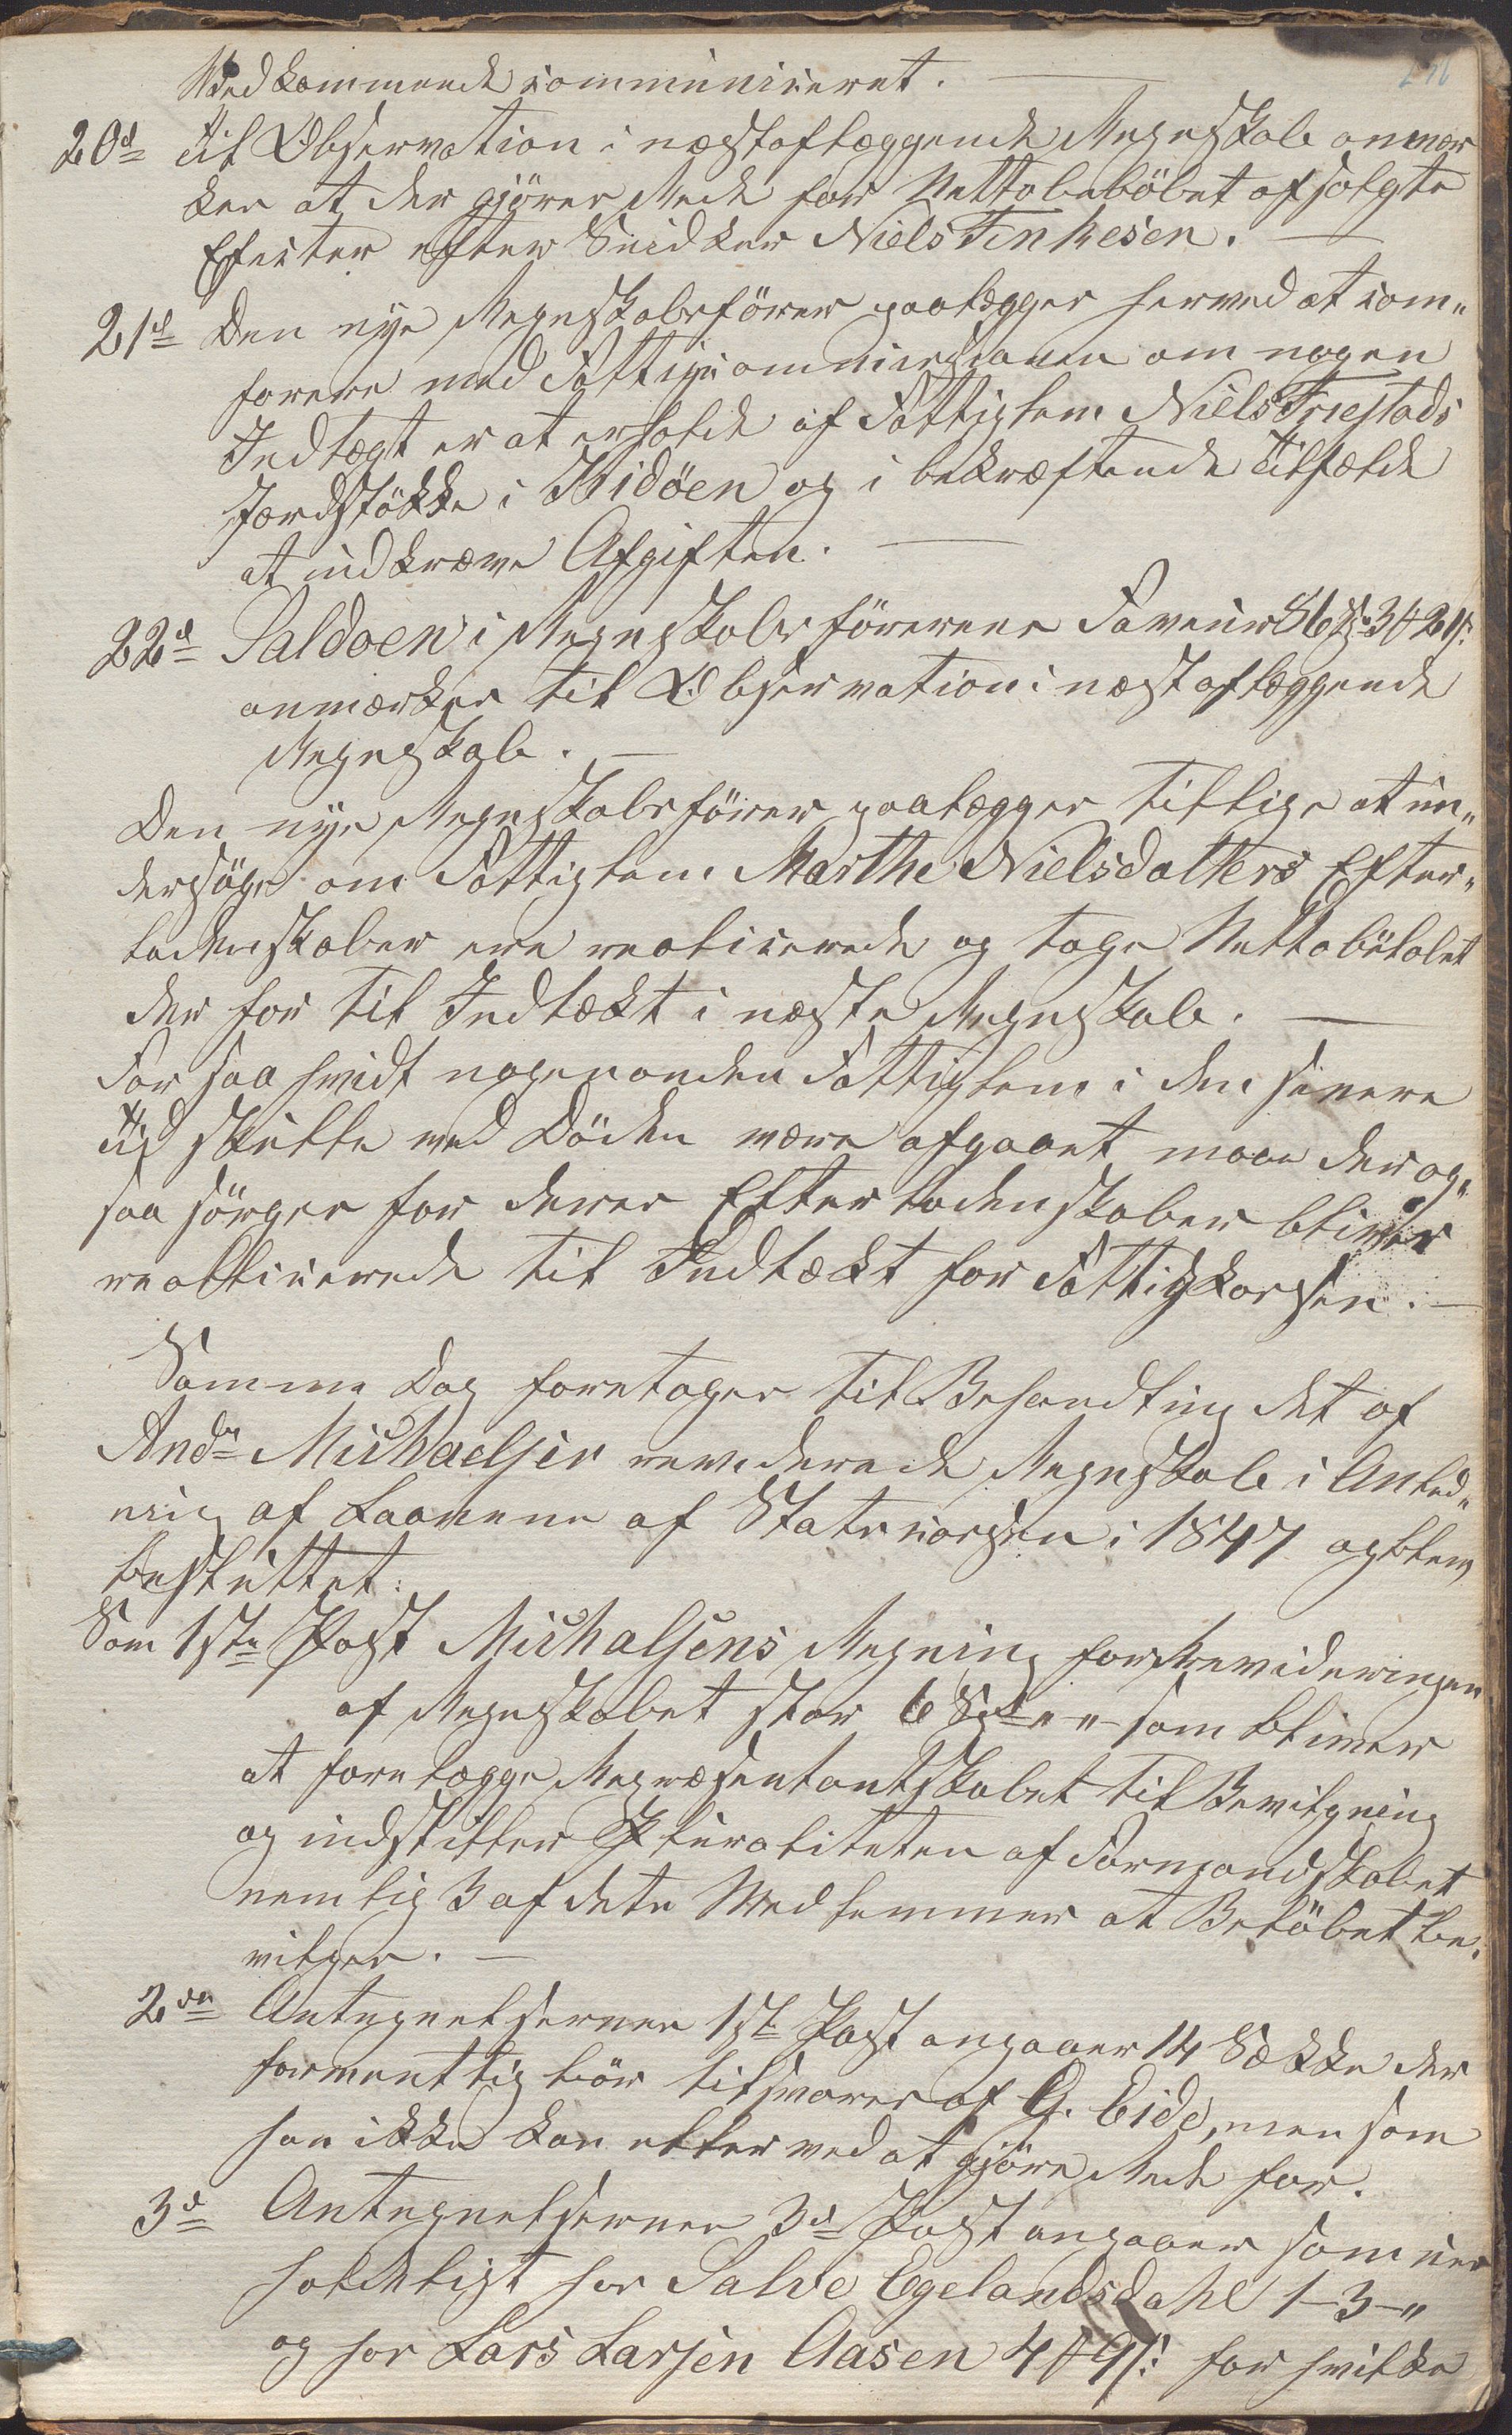 Vedkommende communiceret. —
216
20d Til Observation i næstaflæggende Regnskab anmær
kes at der gjøres Rede for Nettobeløbet af solgte
Efecter efter Snidker Niels Tinkesen. —
21d Den nye Regnskabsfører paalægges herved at com„
forere med Fattigcommissionen om nogen
Indtægt er at erholde af Fattiglem Niels Friestads
Jordstøkke i Hidøen og i bekræftende Tilfælde
at indkræve Afgiften. —
22d Saldoen i Regnskabsførerens Faveur 86 Spd 3 # 21 s:
anmærkes til Observation i næstaflæggende
Regnskab. —
Den nye Regnskabsfører paalægges tillige at un„
dersøge om Fattiglem Marthe Nielsdatters Efter„
ladenskaber ere realiserede og tage Nettobeløbet
der for til Indtækt i næste Regnskab. —
For saa hvidt nogen anden Fattiglem i den senere
Tid skulle ved Døden være afgaaet maae der og„
saa sørges for deres Efterladenskaber bliver
realliserede til Indtækt for Fattigkassen. —
Samme Dag foretages til Behandling det af
Andrs Michaelsen reviderede Regnskab i Anled„
ning af Laanene af Statscassen i 1847 og blev
besluttet:
Som 1ste Post Michalsens Regning for Revideringen
af Regnskabet stor 6 Spd „ „ som bliver
at forelægge Repræsentantskabet til Bevilgning
og indstiller Pluraliteten af Formandskabet
nemlig 3 af dets Medlemmer at Beløbet be„
vilges. —
2den Antegnelsernes 1ste Post angaaer 14 Sække der
formentlig bør tilsvares af G. Eide, men som
han ikke kan eller ved at gjøre Rede for.
3d Antegnelsernes 3d Post angaaer som uer
holdeligt hos Salve Egelandsdahl 1-3-„
og hos Lars Larsen Aasen 4 # 9 s: for hvilke